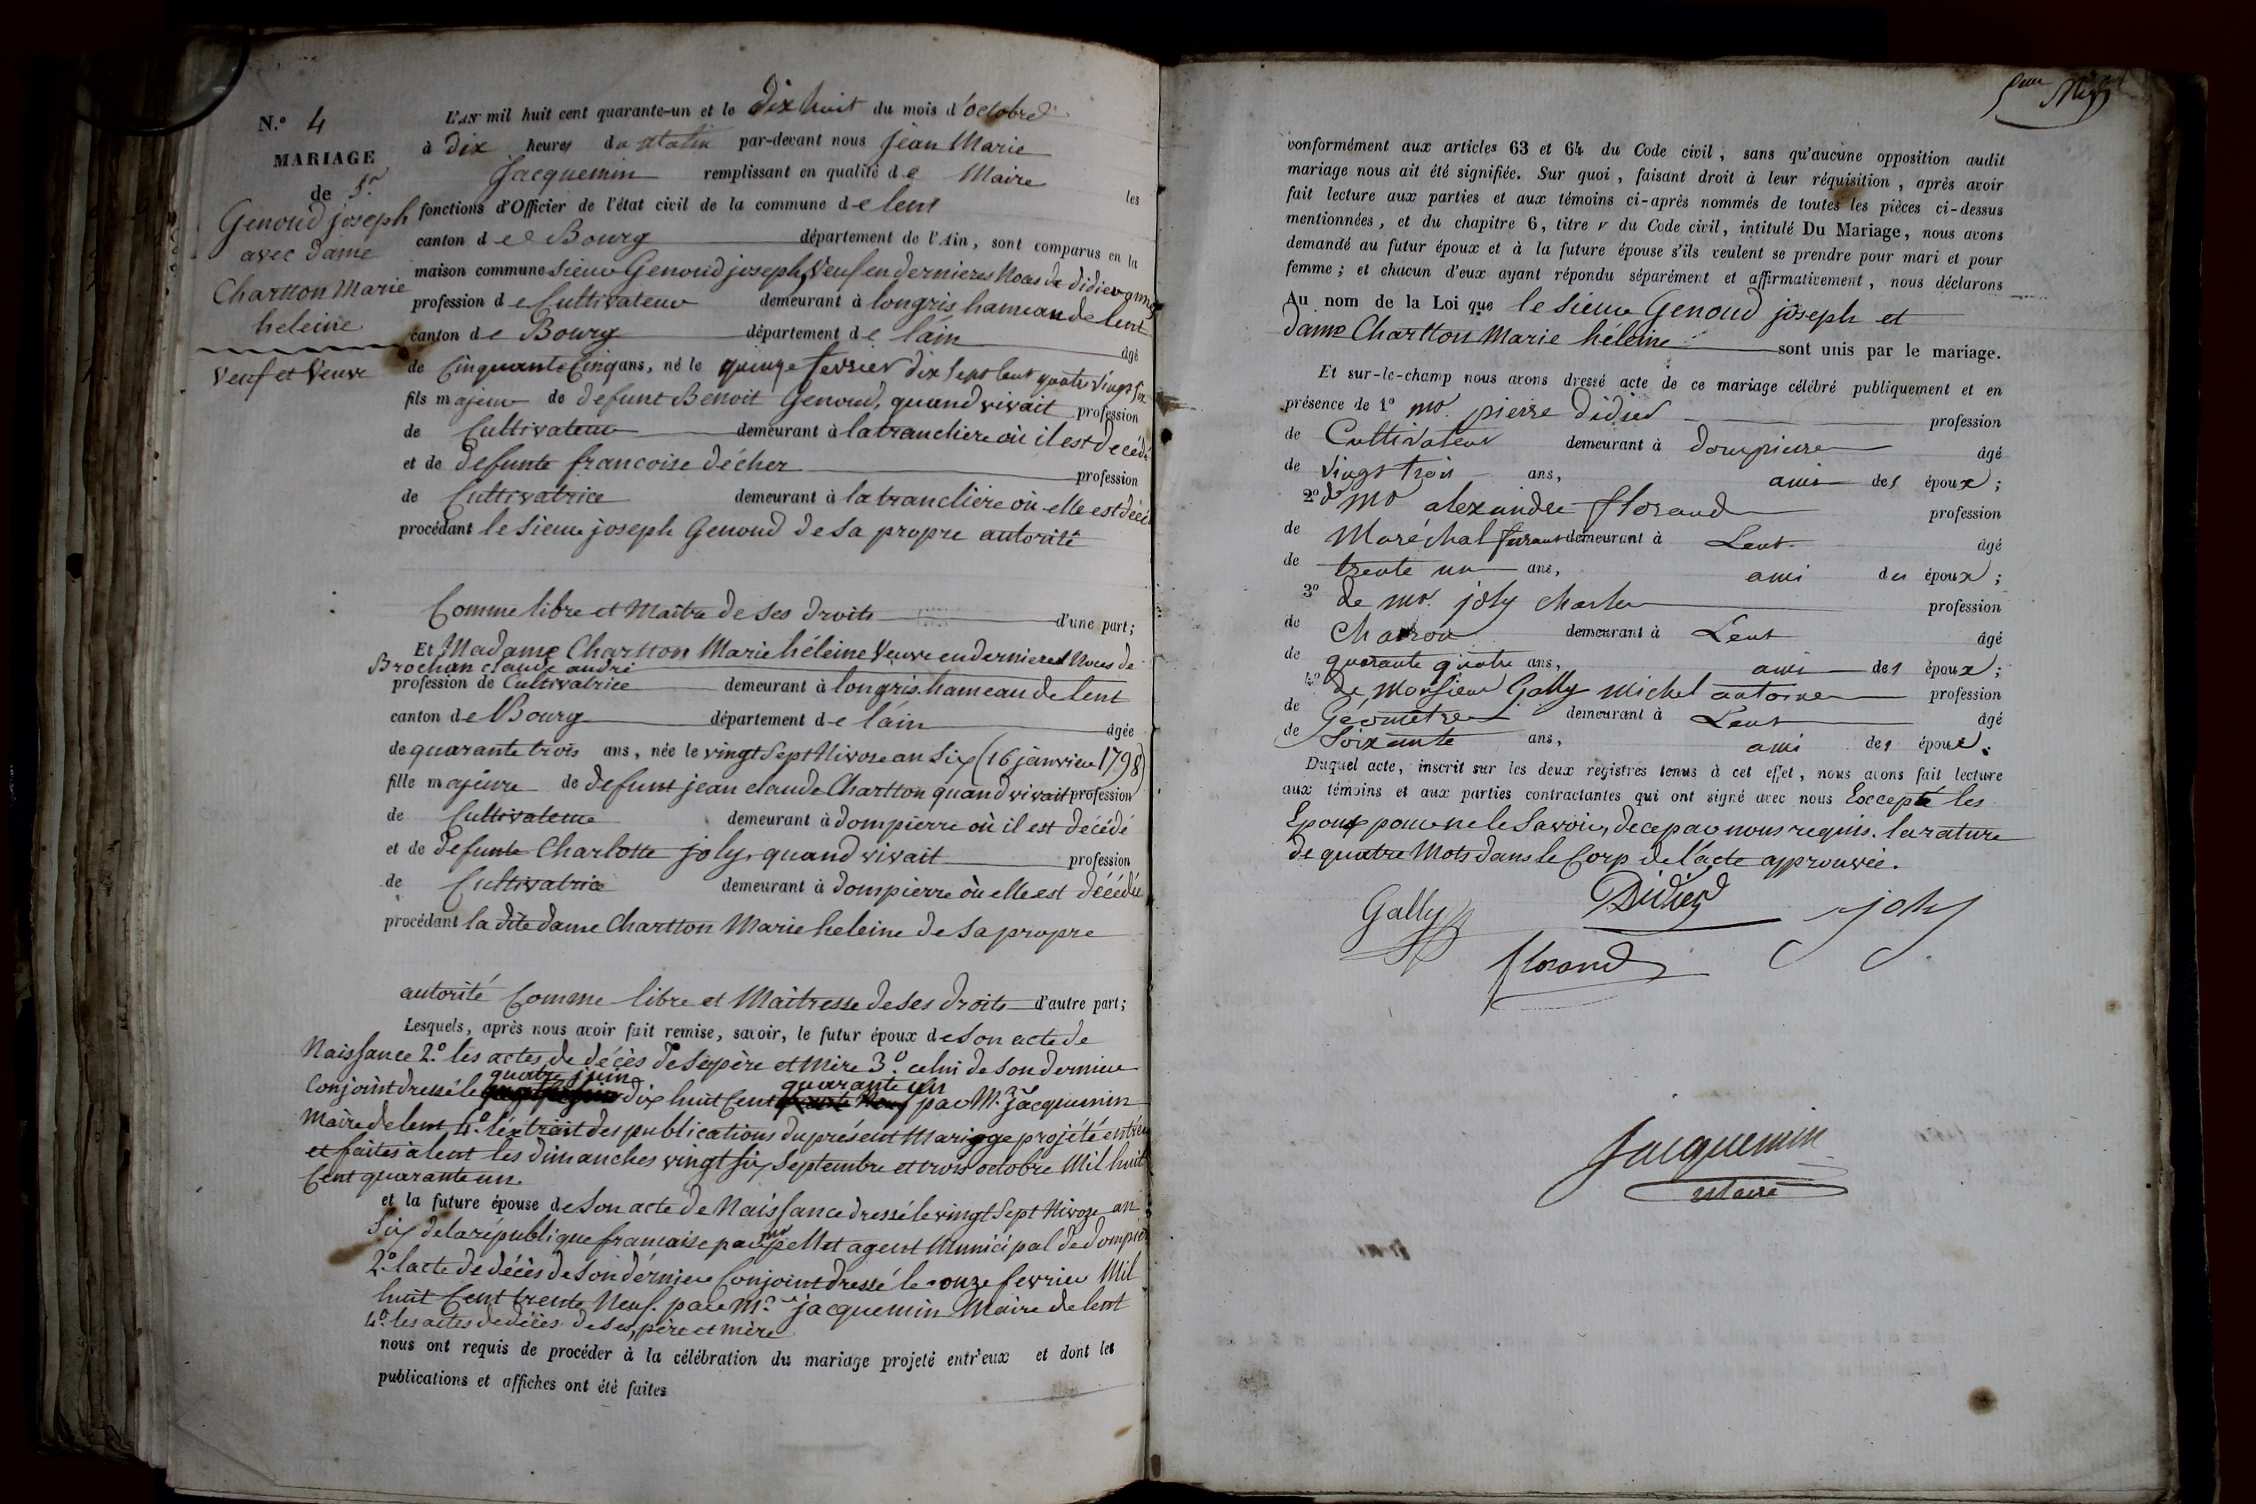 N.º 4
MARIAGE
de Sr.
Genoud joseph
avec dame
Chartton Marie
heleine
Veuf et Veuve
L'AN mil huit cent quarante-un et le dix huit du mois d'octobre
à dix heures du Matin par-devant nous jean Marie
Jacquemin remplissant en qualité de Maire les
fonctions d'Officier de l'état civil de la commune de lent
canton de Bourg département de l'Ain, sont comparus en la
maison commune Sieur Genoud joseph, Veuf en dernieres Noces de didier anne
profession de Cultivateur demeurant à longris, hameau de lent
canton de Bourg département de lain âgé
de Cinquante Cinq ans, né le quinze fevrier dix Sept Cent quatre Vingt Six
fils majeur de defunt Benoit Genoud, quand vivait profession
de Cultivateur demeurant à la tranclière où il est décédé
et de defunte francoise décher profession
de Cultivatrice demeurant à la tranclière où elle est décédé
procédant le Sieur joseph Genoud de Sa propre autorité
Comme libre et Maître de Ses droits d'une part;
Et Madame Chartton Marie héleine Veuve en dernieres Noces de
Brochan claude andré
profession de Cultivatrice demeurant à longris, hameau de lent
canton de Bourg département de láin âgée
de quarante trois ans, née le vingt Sept Nivose an Six (16 janvier 1798)
fille majeure de defunt jean claude Chartton quand vivait profession
de Cultivateur demeurant à dompierre où il est décédé
et de defunte Charlotte joly, quand vivait profession
de Cultivatrice demeurant à dompierre où elle est décédée
procédant la dite dame Chartton Marie heleine de Sa propre
autorité Comme libre et Maîtresse de Ses droits d'autre part;
Lesquels, après nous avoir fait remise, savoir, le futur époux de Son acte de
Naissance 2.º les actes de décès de Ses père et Mère 3.º celui de Son dernier
quatre juin quarante un
Conjoint dressé le dix huit Cent par Mr. Jacquemin
Maire de lent 4.º l'extrait des publications du présent Mariage projété entr'eu
et faites à lent les dimanches vingt Six Septembre et trois octobre Mil huit
Cent quarante un.
et la future épouse de Son acte de Naissance dressé le vingt Sept Nivoze an
Six de la république francaise par mr pellet agent Municipal de dompier
2.º l'acte de décès de Son dérnier Conjoint dressé le onze fevrier Mil
huit Cent trente Neuf. par Mr. jacquemin Maire de lent
4.º les actes de décès de Ses, père et mère
nous ont requis de procéder à la célébration du mariage projeté entr'eux et dont les
publications et affiches ont été faites
conformément aux articles 63 et 64 du Code civil, sans qu'aucune opposition audit
mariage nous ait été signifiée. Sur quoi, faisant droit à leur réquisition, après avoir
fait lecture aux parties et aux témoins ci-après nommés de toutes les pièces ci-dessus
mentionnées, et du chapitre 6, titre V du Code civil, intitulé Du Mariage, nous avons
demandé au futur époux et à la future épouse s'ils veulent se prendre pour mari et pour
femme; et chacun d'eux ayant répondu séparément et affirmativement, nous déclarons
Au nom de la Loi que le Sieur Genoud joseph et
dame Chartton Marie héleine sont unis par le mariage.
Et sur-le-champ nous avons dressé acte de ce mariage célébré publiquement et en
présence de 1º mr. pierre didier profession
de Cultivateur demeurant à dompierre âgé
de Vingt trois ans, ami des époux;
2º de mr alexandre florand profession
de Maréchal ferrant demeurant à Lent âgé
de trente un ans, ami des époux;
3º de mr. joly charles profession
de Charron demeurant à Lent âgé
de quarante quatre ans, ami des époux;
4º de Monsieur Gally Michel antoine profession
de Géomètre demeurant à Lent âgé
de Soixante ans, ami des époux.
Duquel acte, inscrit sur les deux registres tenus à cet effet, nous avons fait lecture
aux témoins et aux parties contractantes qui ont signé avec nous Excepté les
Epoux pour ne le Savoir, de ce par nous requis. la rature
de quatre Mots dans le Corp de l'acte approuvée.
Gally Didier joly
florand
Jacquemin
Maire